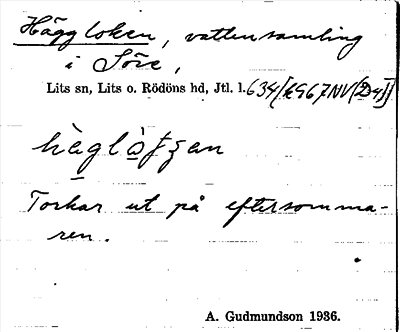 Häggloken, vattensamling
i Söre,
Lits sn, Lits o. Rödöns hd, Jtl. l.
Torkar ut på eftersomma-
ren.
A. Gudmundson 1936.